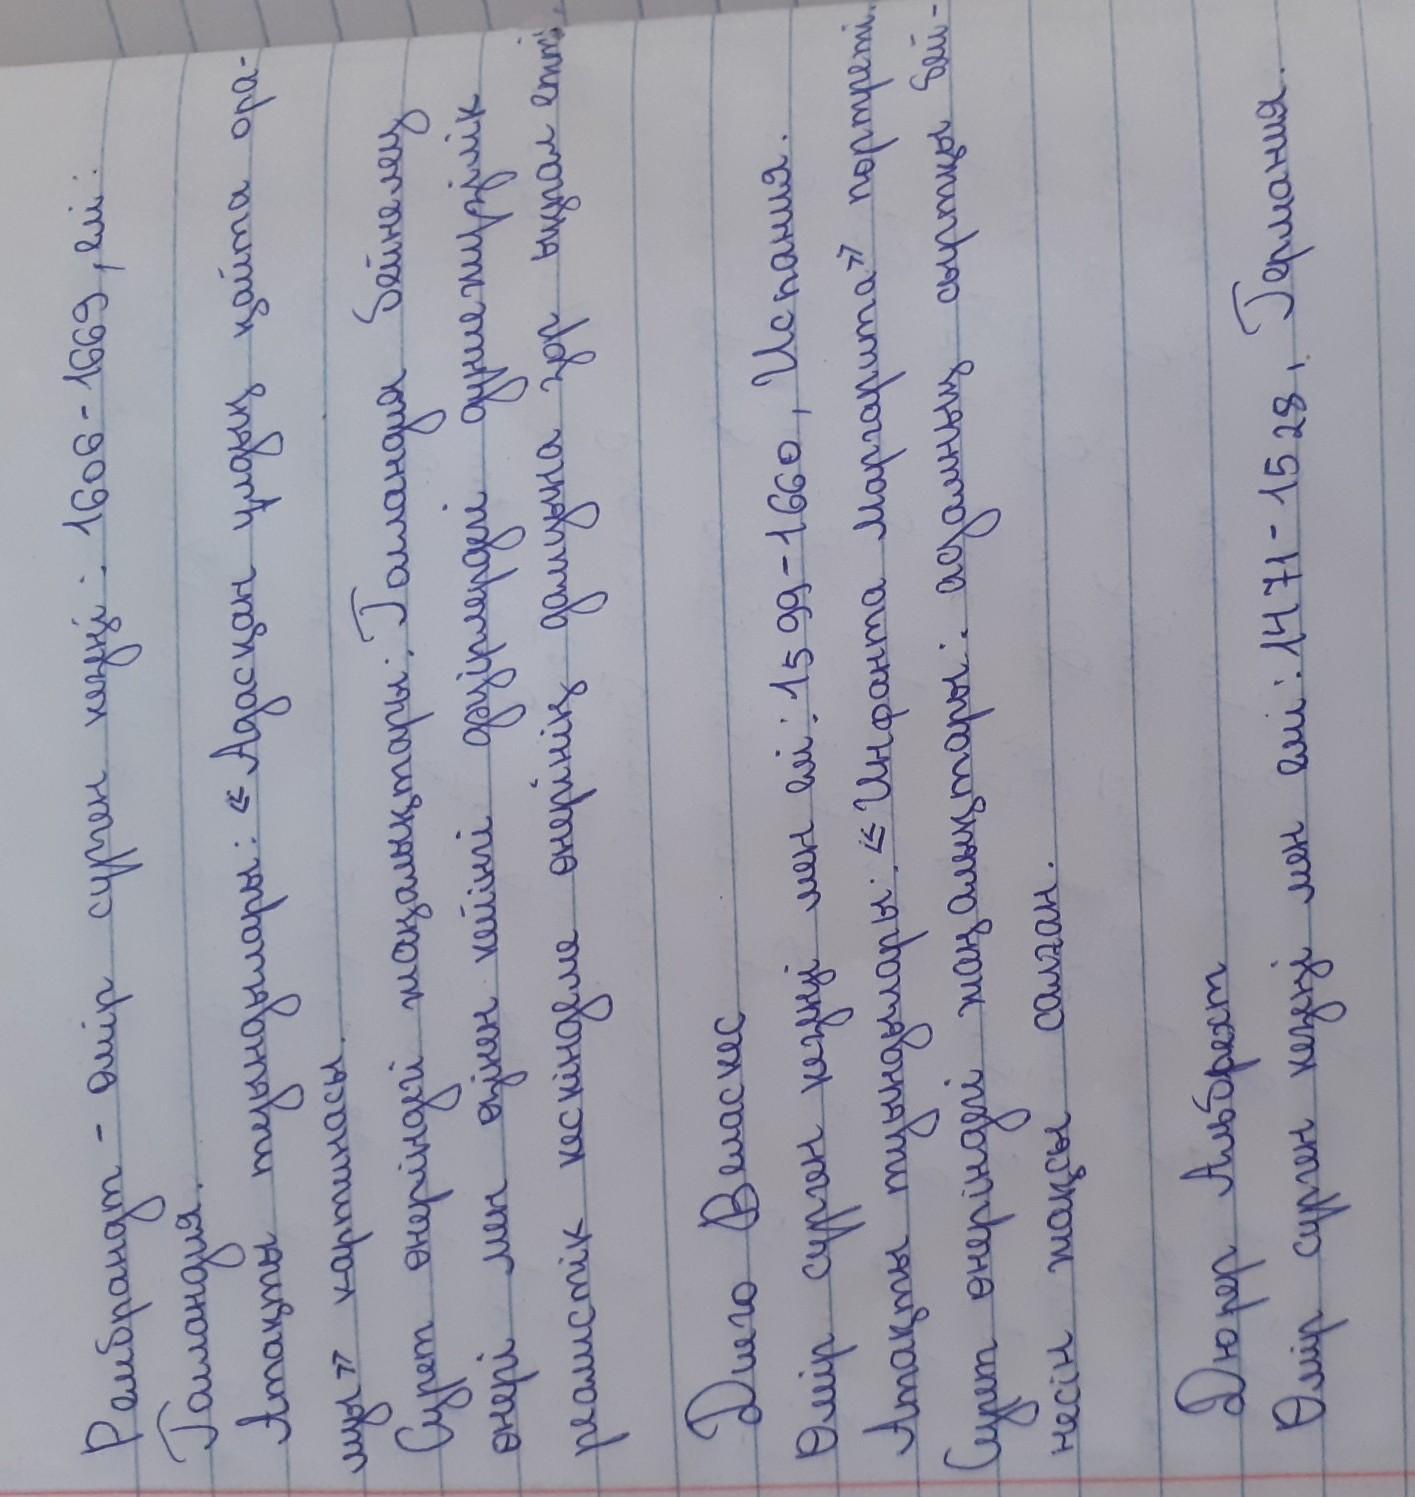 Рембрандт - өмір сүрген кезеңі: 1606-1669, елі:
Голландия.
Атақты туындылары: «Адасқан ұлдың қайта ора-
луы» картинасы.
Сурет өнеріндегі жаңалықтары: Голландия бейнелеу
өнері мен өзінен кейінгі дәуірлердегі дүниежүзілік
реалистік кескіндеме өнерінің дамуына зор ықпал етті.
Диего Веласкес
Өмір сүрген кезеңі мен елі: 1599-1660, Испания.
Атақты туындылары: «Инфанта Маргарита» портреті.
Сурет өнеріндегі жаңалықтары: адамның сыртқы бей-
несін жақсы салған.
Дюрер Альбрехт
Өмір сүрген кезеңі мен елі: 1471-1528, Германия.